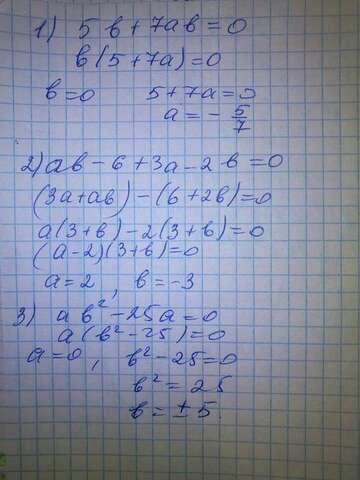 1) 5в + 7ав = 0
в(5 + 7а) = 0
в = 0 5 + 7а = 0
а = - 5/7
2) ав - 6 + 3а - 2в = 0
(3а + ав) - (6 + 2в) = 0
а(3 + в) - 2(3 + в) = 0
(а - 2)(3 + в) = 0
а = 2, в = -3
3) ав² - 25а = 0
а(в² - 25) = 0
а = 0, в² - 25 = 0
в² = 25
в = ± 5